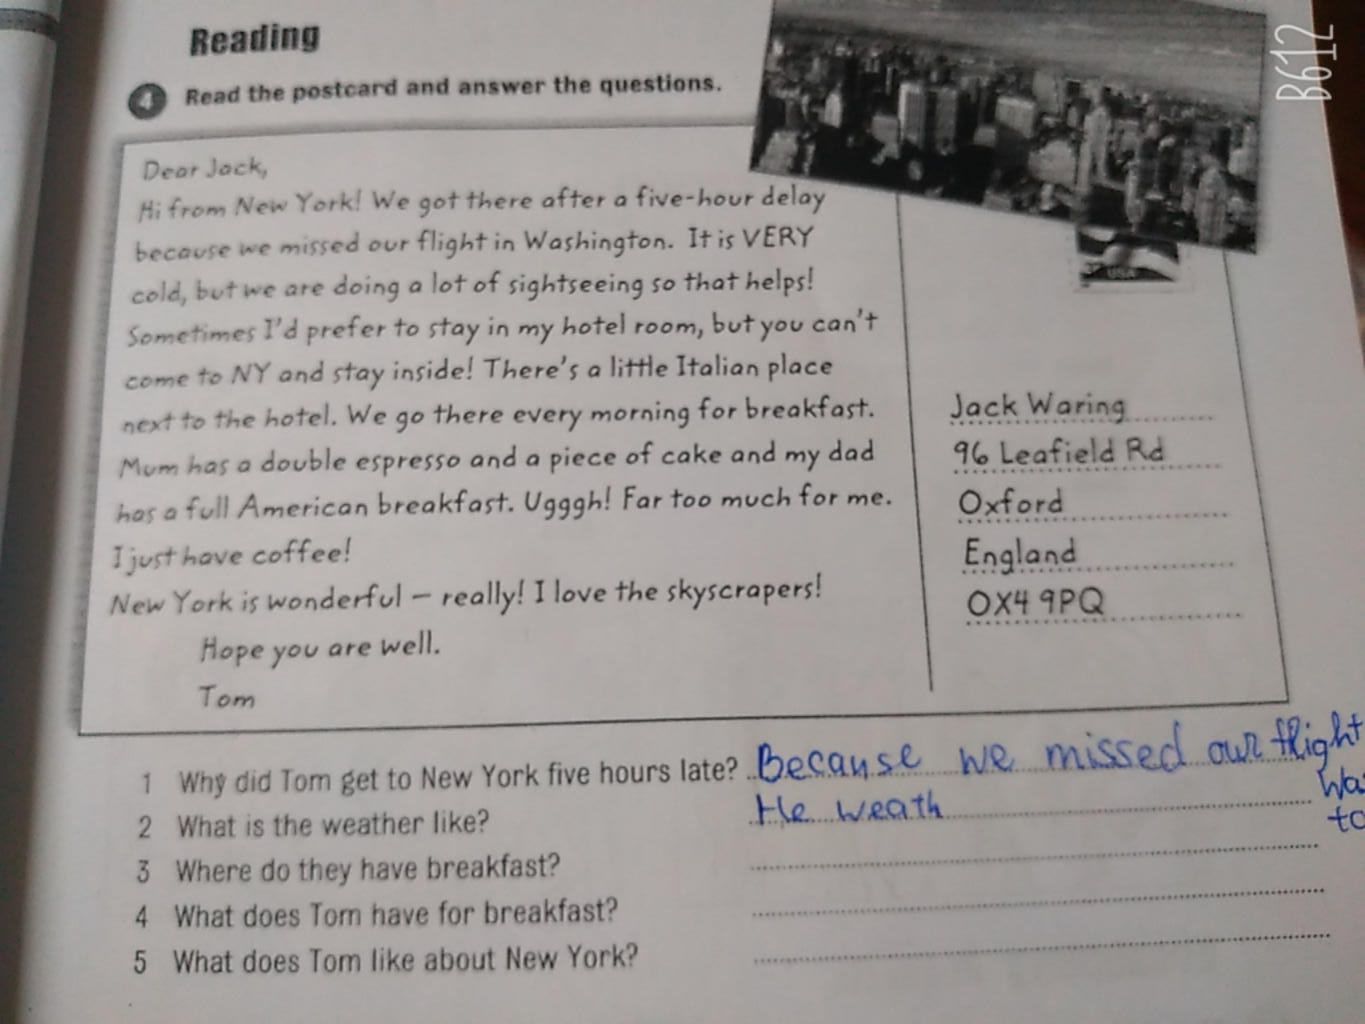 Reading
4 Read the postcard and answer the questions.
B612
Dear Jack,
Hi from New York! We got there after a five-hour delay
because we missed our flight in Washington. It is VERY
cold, but we are doing a lot of sightseeing so that helps!
Sometimes I'd prefer to stay in my hotel room, but you can't
come to NY and stay inside! There's a little Italian place
next to the hotel. We go there every morning for breakfast.
Mum has a double espresso and a piece of cake and my dad
has a full American breakfast. Ugggh! Far too much for me.
I just have coffee!
New York is wonderful – really! I love the skyscrapers!
Hope you are well.
Tom
37 USA
Jack Waring
96 Leafield Rd
Oxford
England
OX4 9PQ
1 Why did Tom get to New York five hours late? Because we missed our flight
2 What is the weather like? He weath
3 Where do they have breakfast?
4 What does Tom have for breakfast?
5 What does Tom like about New York?